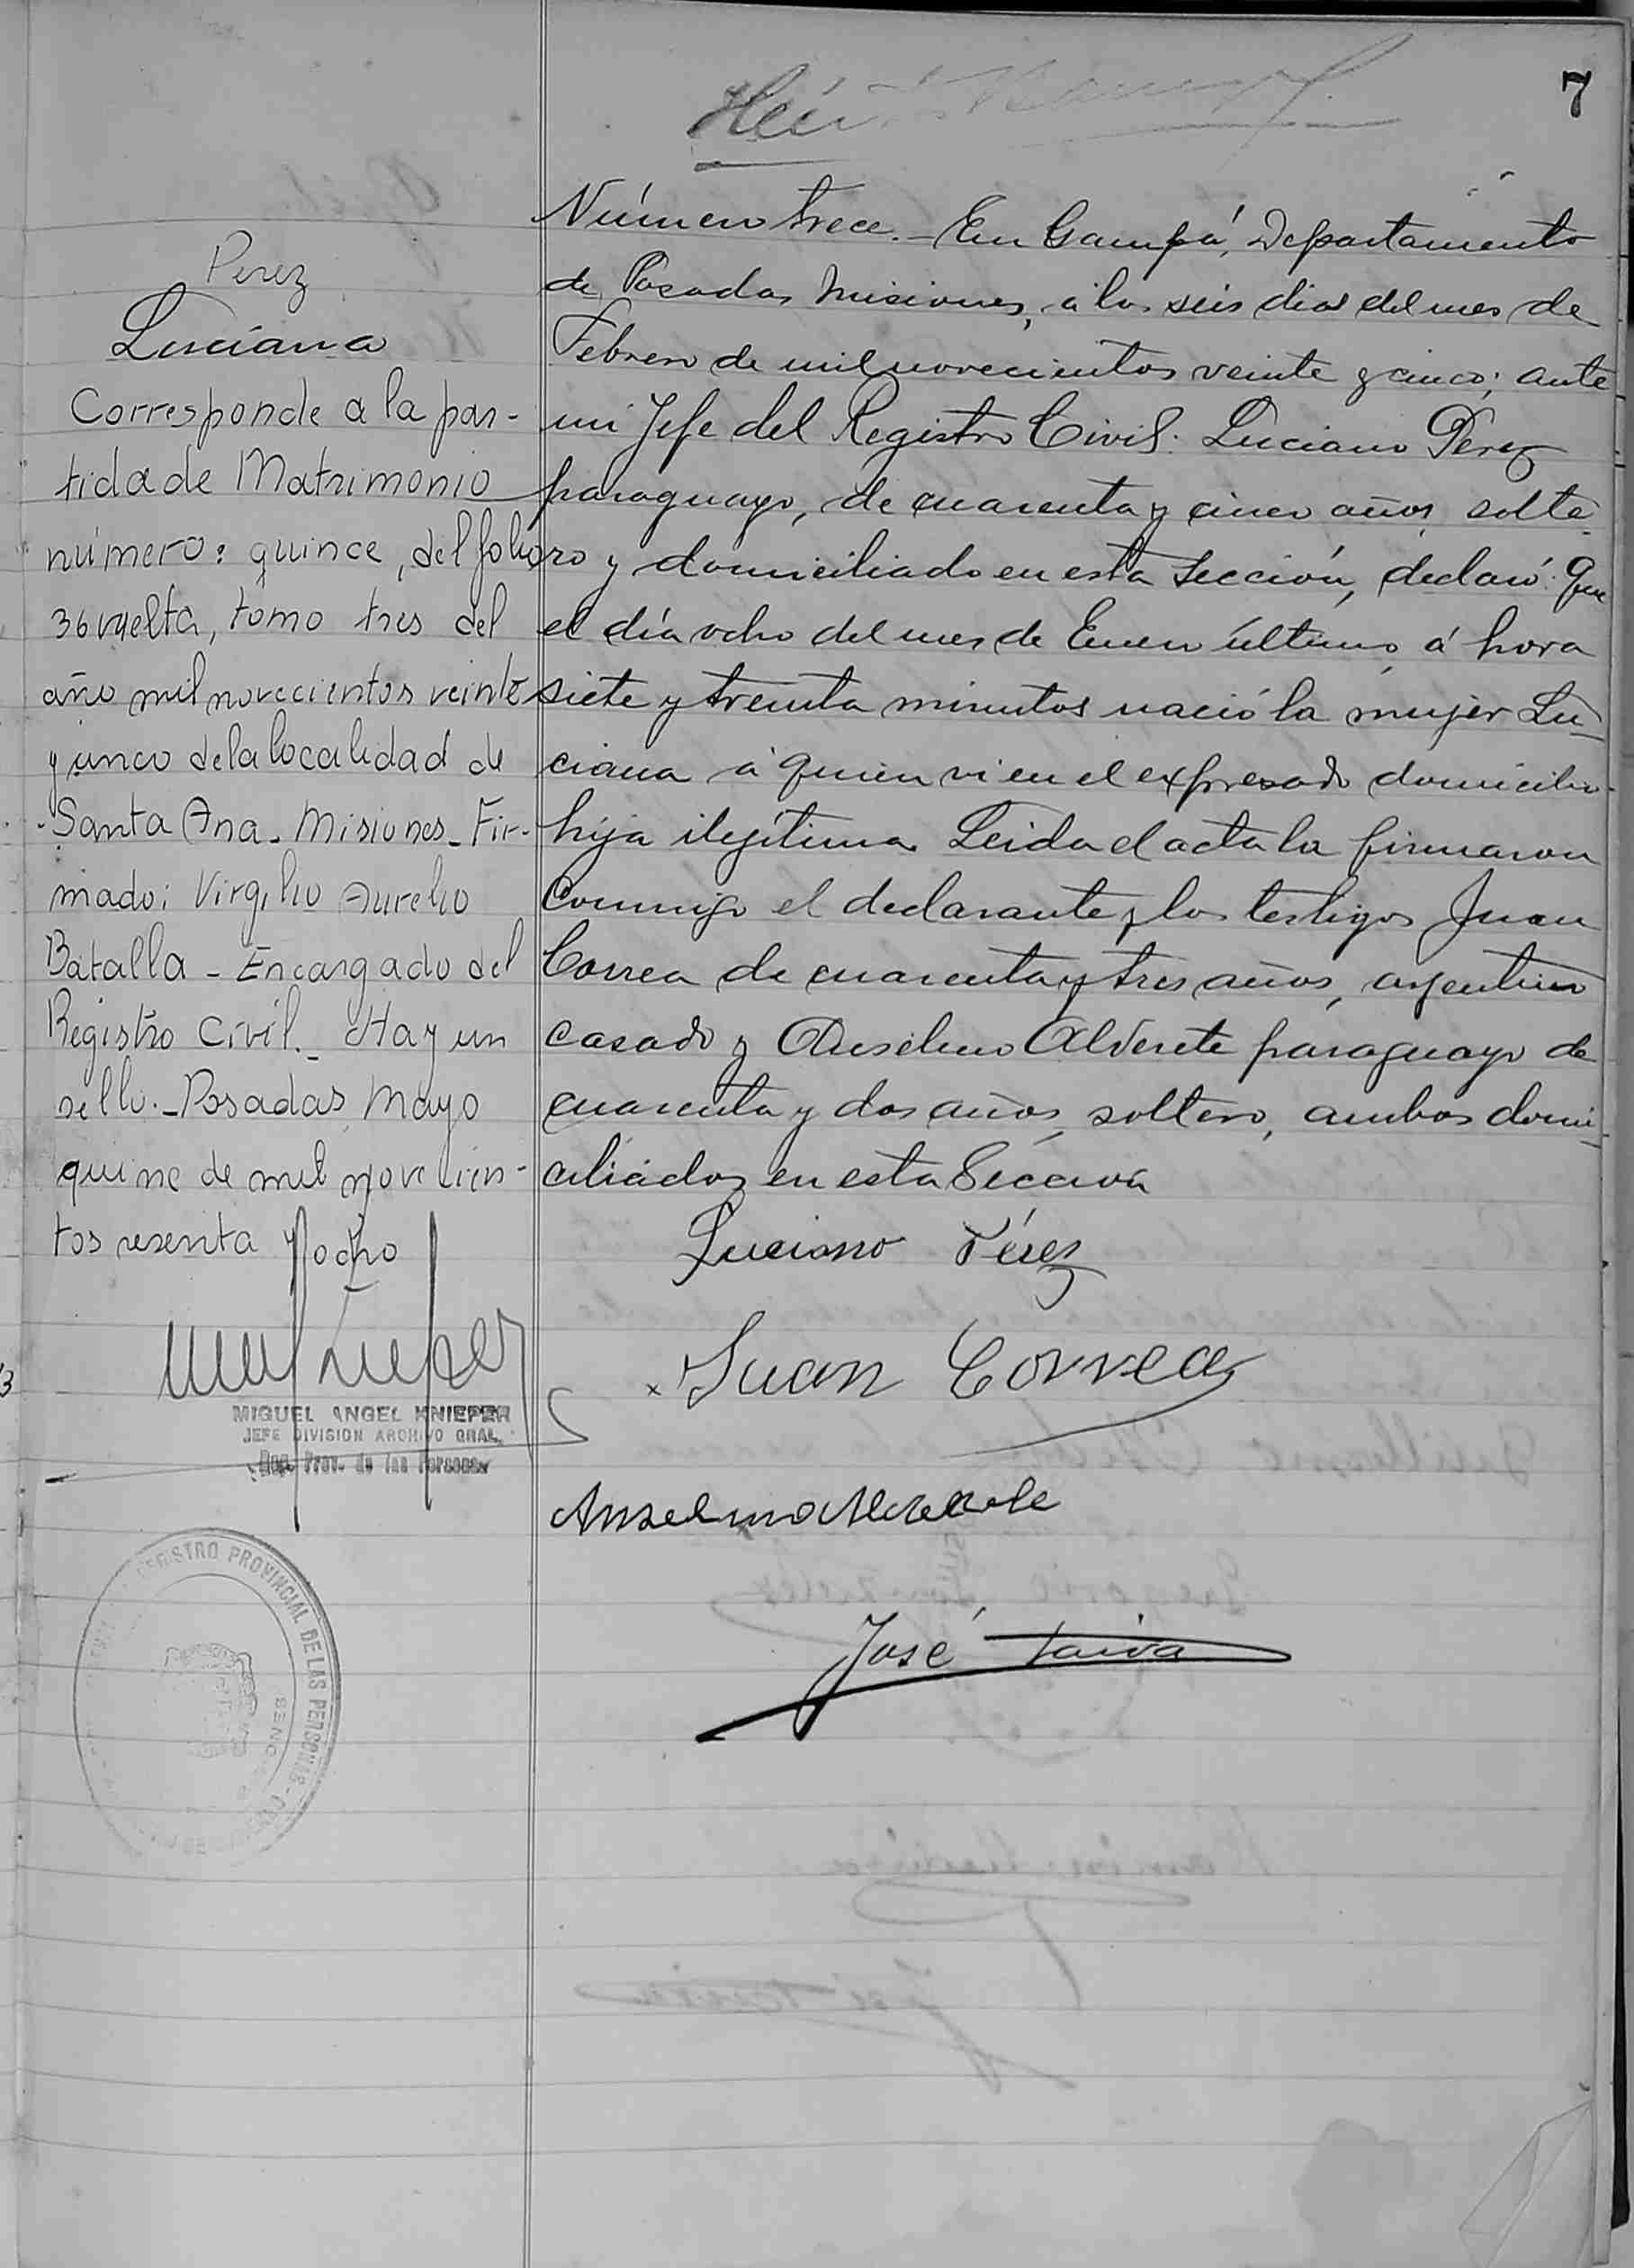 7
Perez
Luciana
Corresponde a la par-
tida de Matrimonio
número: quince, del folio
36 vuelta, tomo tres del
año mil novecientos veinte
y cinco de la localidad de
Santa Ana - Misiones - Fir-
mado: Virgilio Aurelio
Batalla - Encargado del
Registro Civil. - Hay un
sello. - Posadas, Mayo
quince de mil novecien-
tos sesenta y ocho
MIGUEL ANGEL KNIEPER
JEFE DIVISION ARCHIVO GRAL.
Reg. Prov. de las Personas
REGISTRO PROVINCIAL DE LAS PERSONAS
Número trece. - En Garupá, Departamento
de Posadas Misiones, á los seis dias del mes de
Febrero de mil novecientos veinte y cinco; ante
mi Jefe del Registro Civil: Luciano Perez
paraguayo, de cuarenta y cinco años, solte-
ro y domiciliado en esta Sección, declaró: Que
el día ocho del mes de Enero último, á hora
siete y treinta minutos nació la mujer Lu-
ciana á quien vi en el expresado domicilio
hija ilegítima. Leida el acta la firmaron
conmigo el declarante y los testigos Juan
Correa de cuarenta y tres años, argentino
casado y Anselmo Alderete paraguayo de
cuarenta y dos años, soltero, ambos domi-
ciliados en esta Sección
Luciano Pérez
Juan Correa
Anselmo Alderete
José